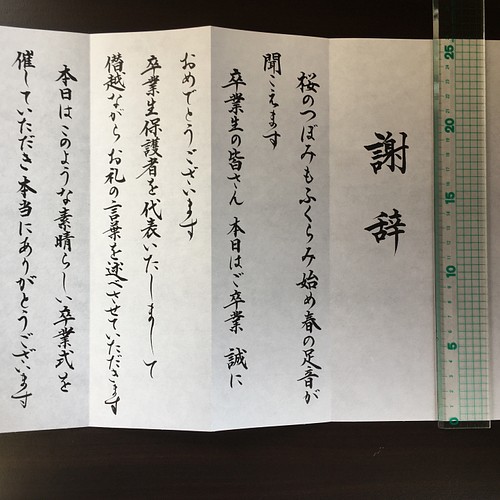 謝辞
桜のつぼみもふくらみ始め春の足音が
聞こえます
卒業生の皆さん 本日はご卒業 誠に
おめでとうございます
卒業生保護者を代表いたしまして
僭越ながら お礼の言葉を述べさせていただきます
本日はこのような素晴らしい卒業式を
催していただき 本当にありがとうございます
25
20
15
10
5
0